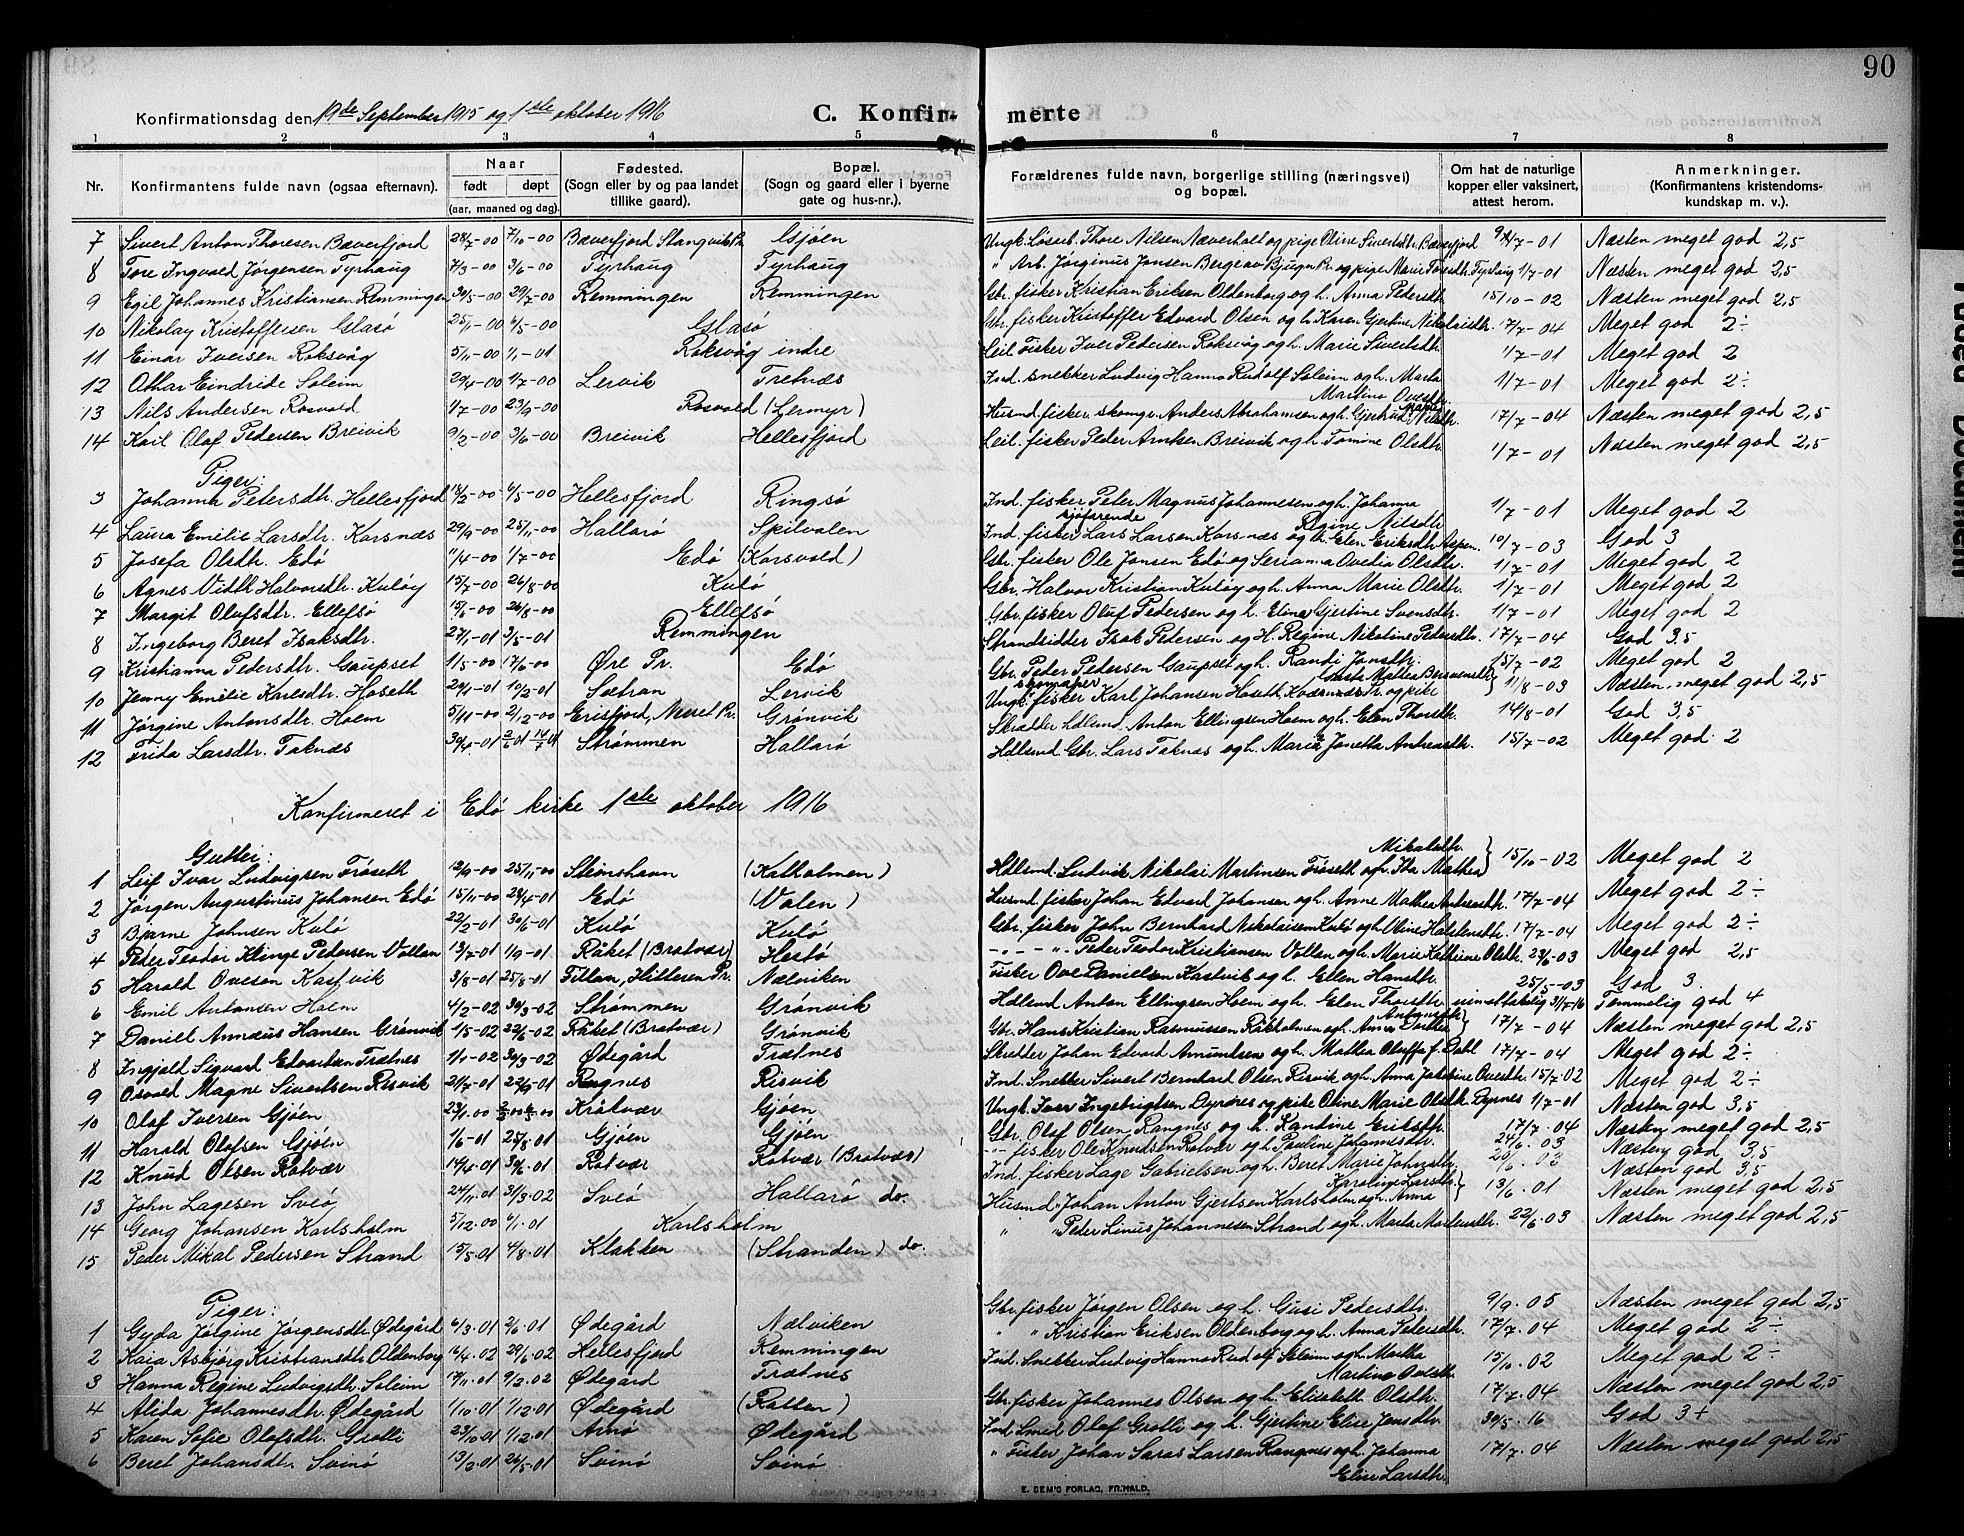 90
Konfirmationsdag den 19de September 1915 og 1ste oktober 1916
C. Konfir- merte
1 2 3 4 5 6 7 8
Nr.
Konfirmantens fulde navn (ogsaa efternavn).
Naar
født døpt
(aar, maaned og dag).
Fødested.
(Sogn eller by og paa landet
tillike gaard).
Bopæl.
(Sogn og gaard eller i byerne
gate og hus-nr.).
Forældrenes fulde navn, borgerlige stilling (næringsvei)
og bopæl.
Om hat de naturlige
kopper eller vaksinert,
attest herom.
Anmerkninger.
(Konfirmantens kristendoms-
kundskap m. v.).
7 Sivert Anton Thoresen Bæverfjord 28/7-00 7/10-00 Bæverfjord Stangvik Pr. Gjøen Ungk. Løsarb. Thore Nilsen Næverholt og pige Oline Sivertsdtr. Bæverfjord /7-01 Næsten meget god 2,5
8 Tore Ingvald Jørgensen Tyrhaug 7/3-00 3/6-00 Tyrhaug Tyrhaug " Arb. Jørginus Jonsen Berge av Bjugn Pr. og pige Marie Toresdtr. Tyrhaug 1/7-01 Næsten meget god 2,5
9 Egil Johannes Kristiansen Remmingen 30/5-00 29/7-00 Remmingen Remmingen Gbr. fisker Kristian Eriksen Oldenborg og h. Anna Pedersdtr. 15/10-02 Næsten meget god 2,5
10 Nikolay Kristoffersen Glasø 25/1-00 6/5-00 Glasø Gbr. fisker Kristoffer Edvard Olsen og h. Karen Gjertine Nikolaisdtr. 17/7-04 Meget god 2÷
11 Einar Iversen Roksvåg 5/11-00 1/1-01 Roksvåg indre Leil. Fisker Iver Pedersen Roksvåg og h. Marie Sivertsdtr. 1/7-01 Meget god 2
12 Othar Eindride Soleim 29/4-00 1/7-00 Lervik Tretnæs Ind. snekker Ludvig Hanno Rudolf Soleim og h. Marta 1/7-01 Meget god 2÷
Martine Ovesdtr.
13 Nils Andersen Rosvold 1/7-00 23/9-00 Rosvold (Lermyr) Husmd. fisker skomgr. Anders Abrahamsen og h. Gjertrud Nilsdtr. 17/7-04 Næsten meget god 2,5
14 Karl Olaf Pedersen Breivik 9/2-00 3/6-00 Breivik Hellesfjord Leil. fisker Peder Arntsen Breivik og h. Tomine Olsdtr. 1/7-01 Næsten meget god 2,5
Piger:
3 Johanna Petersdtr. Hellesfjord 18/3-00 6/5-00 Hellesfjord Ringsø Ind. fisker Peter Magnus Johannesen og h. Johanna 1/7-01 Meget god 2
Regine Nilsdtr.
4 Laura Emilie Larsdtr. Korsnæs 29/9-00 25/11-00 Hallarø Spilvalen Ind. fisker sjøfarende Lars Larsen Korsnæs og h. Elen Eriksdtr. Aspen. 10/7-03 God 3
5 Josefa Olsdtr. Edø 11/4-00 1/7-00 Edø (Korsvold) Gbr. fisker Ole Jonsen Edø og Serianna Ovedia Olsdtr. 1/7-01 Meget god 2
6 Agnes Vidth Halvorsdtr. Kuløy 15/7-00 26/8-00 Kulø Gbr. Halvor Kristian Kuløy og h. Anna Marie Olsdtr. 1/7-01 Meget god 2
7 Margit Olufsdtr. Ellefsø 15/6-00 26/8-00 Ellefsø Gbr. fisker Oluf Pedersen og h. Eline Gjertine Svensdtr. 1/7-01 Meget god 2
8 Ingeborg Beret Isaksdtr. 27/1-01 3/5-01 Remmingen Strandsidder Isak Pedersen og H. Regine Nikoline Pedersdtr. 17/7-04 God 3,5
9 Kristianna Pedersdtr. Gaupset 1/5-00 17/6-00 Øre Pr. Edø Gbr. Peder Pedersen Gaupset og h. Randi Jonsdtr. 15/7-02 Meget god 2
10 Jenny Emilie Karlsdtr. Hoseth 29/1-01 10/2-01 Sætran Lervik Ungk. fisker skomager Karl Johansen Hoseth, Kværnæs Pr. og pike 11/8-03 Næsten meget god 2,5
11 Jørgine Antonsdtr. Hoem 5/11-00 2/12-00 Erisfjord, Nesset Pr. Grønvik Skredder Hdlsmd. Anton Ellingsen Hoem og h. Elen Thorsdtr. 14/8-01 God 3,5
12 Frida Larsdtr. Taknæs 30/4-01 2/6 01 14/7 01 Strømmen Hallarø Hdlsmd. Gbr. Lars Taknæs og h. Marie Jonetta Andreasdtr. 15/7-02 Meget god 2
Konfirmeret i Edø kirke 1ste oktober 1916
Gutter:
1 Leif Ivar Ludvigsen Frøseth 12/9-00 25/11-00 Steinshavn (Kalholmen) Hdlsmd. Ludvik Nikolai Martinsen Frøseth og h. Ida Mathea Mikalsdtr. 15/10-02 Meget god 2
2 Jørgen Augustinus Johansen Edø 15/11-00 28/4-01 Edø (Valen) Husmd. fisker Johan Edvard Johansen og h. Anne Mathea Andreasdtr. 17/7-04 Meget god 2÷
3 Bjarne Johnsen Kulø 22/2-01 30/6-01 Kulø Kulø Gbr. fisker John Bernhard Nikolaisen Kulø og h. Oline Halstensdtr. 17/7-04 Meget god 2÷
4 Peder Teodor Klinge Pedersen Vollan 13/7-01 1/9-01 Råket (Bratvær) Hestø -"- Peder Teodor Kristiansen Vollan og h. Marie Kathrine Olsdtr. 24/6-03 Meget god 2,5
5 Harald Ovesen Kastvik 3/8-01 25/8-01 Fillan, Hitteren Pr. Nælviken Fisker Ove Danielsen Kastvik og h. Ellen Hansdtr. 25/5-03 God 3.
6 Emil Antonsen Hoem 4/2-02 30/3-02 Strømmen Grønvik Hdlsmd. Anton Ellingsen Hoem og h. Elen Thorsdtr. uimottakelig 31/7-16 Temmelig god 4
7 Daniell Annæus Hansen Grønvik 1/5-02 22/6-02 Råket (Bratvær) Grønvik Gbr. Hans Kristian Rasmussen Råkholmen og h. Anna Dorthea Antonsdtr. 17/7-04 Næsten meget god 2,5
8 Ingjald Sigvard Edvardsen Trætnes 1/1-02 30/3-02 Ødegård Trætnes Skredder Johan Edvard Amundsen og h. Mathea Oluffa f. Dahl 17/7-04 Meget god 2÷
9 Osvald Magne Sivertsen Risvik 21/7-01 22/9-01 Ragnes Risvik Ind. Snekker Sivert Bernhard Olsen Risvik og h. Anna Jakobine Ovesdtr. 15/7-02 Meget god 2÷
10 Olaf Iversen Gjøen Kråtvær Gjøen Ungk. Iver Ingebrigtsen Dyrnes og pike Oline Marie Olsdtr. Dyrnes 1/7-01 Næsten god 3,5
11 Harald Olafsen Gjøen 1/6-01 25/8.01 Gjøen Gjøen Gbr. Olaf Olsen Rangnes og h. Kandine Eriksdtr. 17/7.04 Næsten meget god 2,5
12 Knud Olsen Rotvær 14/4.01 30/6.01 Rotvær Rotvær (Bratvær) -"- fisker Ole Knudsen Rotvær og h. Pauline Johannesdtr. 24/6.03 Næsten god 3,5
13 John Lagesen Sveø 24/11.01 31/3.02 Sveø Hallarø do. Ind. fisker Lage Gabrielsen og h. Beret Marie Johnsdtr. 20/6.03 Næsten god 3,5
14 Georg Johansen Karlsholm 5/12.00 6/1.01 Karlsholm Husmd. Johan Anton Gjertsen Karlsholm og h. Anna Karoline Larsdtr. 13/6.01 Næsten meget god 2,5
15 Peder Mikal Pedersen Strand 15/5.01 4/8.01 Klakken (Stranden) do. " Peder Linus Johannesen Strand og h. Marta Mortensdtr. 22/6.03 Næsten meget god 2,5
Piger:
1 Gyda Jørgine Jørgensdtr. Ødegård 6/3.01 2/6.01 Ødegård Nælviken Gbr. fisker Jørgen Olsen og h. Gusi Pedersdtr. 9/9.05 Næsten meget god 2,5
2 Kaia Asbjørg Kristiansdtr. Oldenborg 16/4.02 29/6.02 Hellesfjord Remmingen " " Kristian Eriksen Oldenborg og h. Anna Pedersdtr. 17/7.04 Meget god 2÷
3 Hanna Regine Ludvigsdtr. Soleim 17/11.01 9/2.02 Ødegård Trætnes Ind. Snekker Ludvig Hanno Rudolf Soleim og h. Martha 15/10.02 Meget god 2÷
Martine Ovesdtr.
4 Alida Johannesdtr. Ødegård 1/10.01 1/12.01 Ødegård (Rattar) Gbr. fisker Johannes Olsen og h. Elisabeth Olsdtr. 17/7.04 Næsten meget god 2,5
5 Karen Sofie Olofsdtr. Grolli 23/10.01 1/12.01 Arnø Ødegård Ind. Smed Olof Grolli og h. Gjertine Elise Jonsdtr. 30/5.16 God 3+
6 Beret Johansdtr. Svinø 13/2.01 26/5.01 Svinø Svinø " Fisker Johan Saras Larsen Rangnes og h. Johanna 17/7.04 Næsten meget god 2,5
Elise Larsdtr.
E. SEM'S FORLAG, FR.HALD.